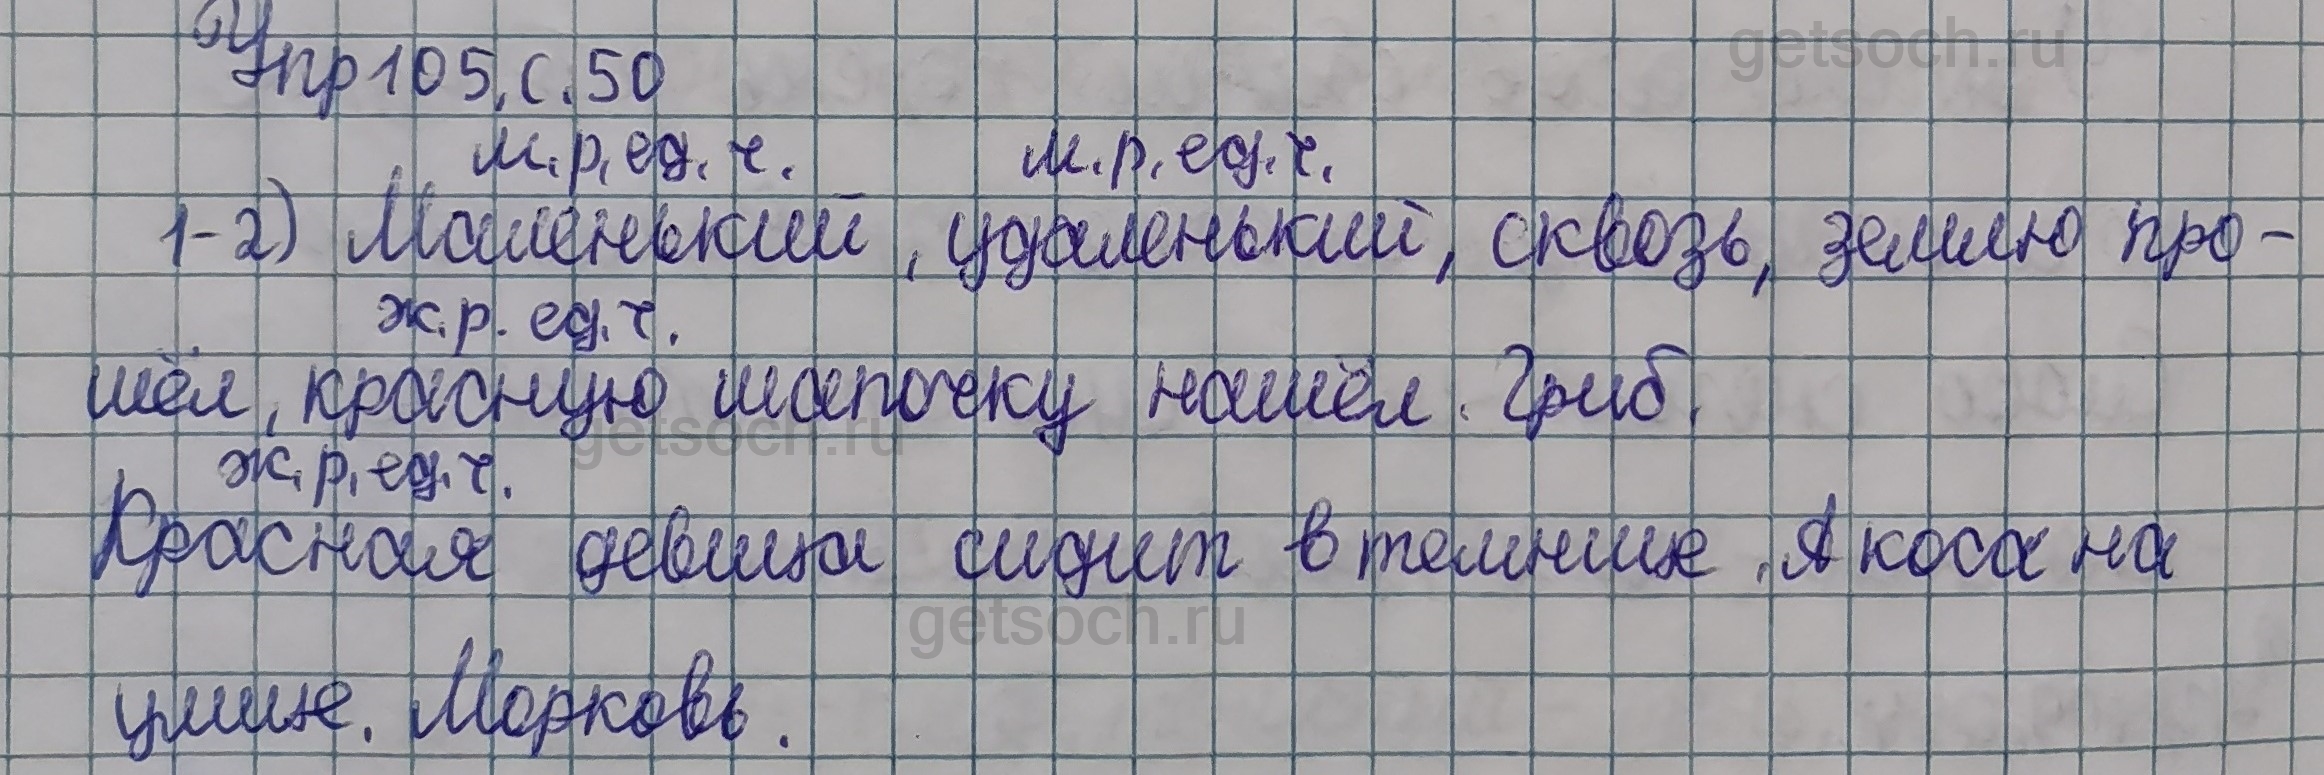 Упр 105, с. 50
м.р. ед. ч. м.р. ед. ч.
1-2) Маленький, удаленький, сквозь, землю про-
ж.р. ед. ч.
шёл, красную шапочку нашёл. Гриб.
ж.р. ед. ч.
Красная девица сидит в темнице. А коса на
улице. Морковь.
getsoch.ru
getsoch.ru
getsoch.ru